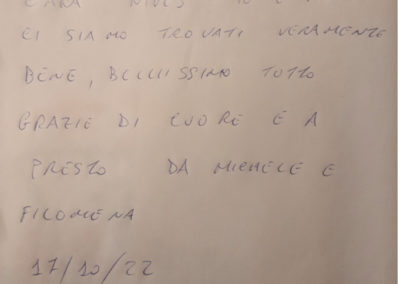 CARA
CI SIAMO TROVATI VERAMENTE
BENE, BELLISSIMO TUTTO
GRAZIE DI CUORE E A
PRESTO DA MICHELE E
FILOMENA
17/10/22